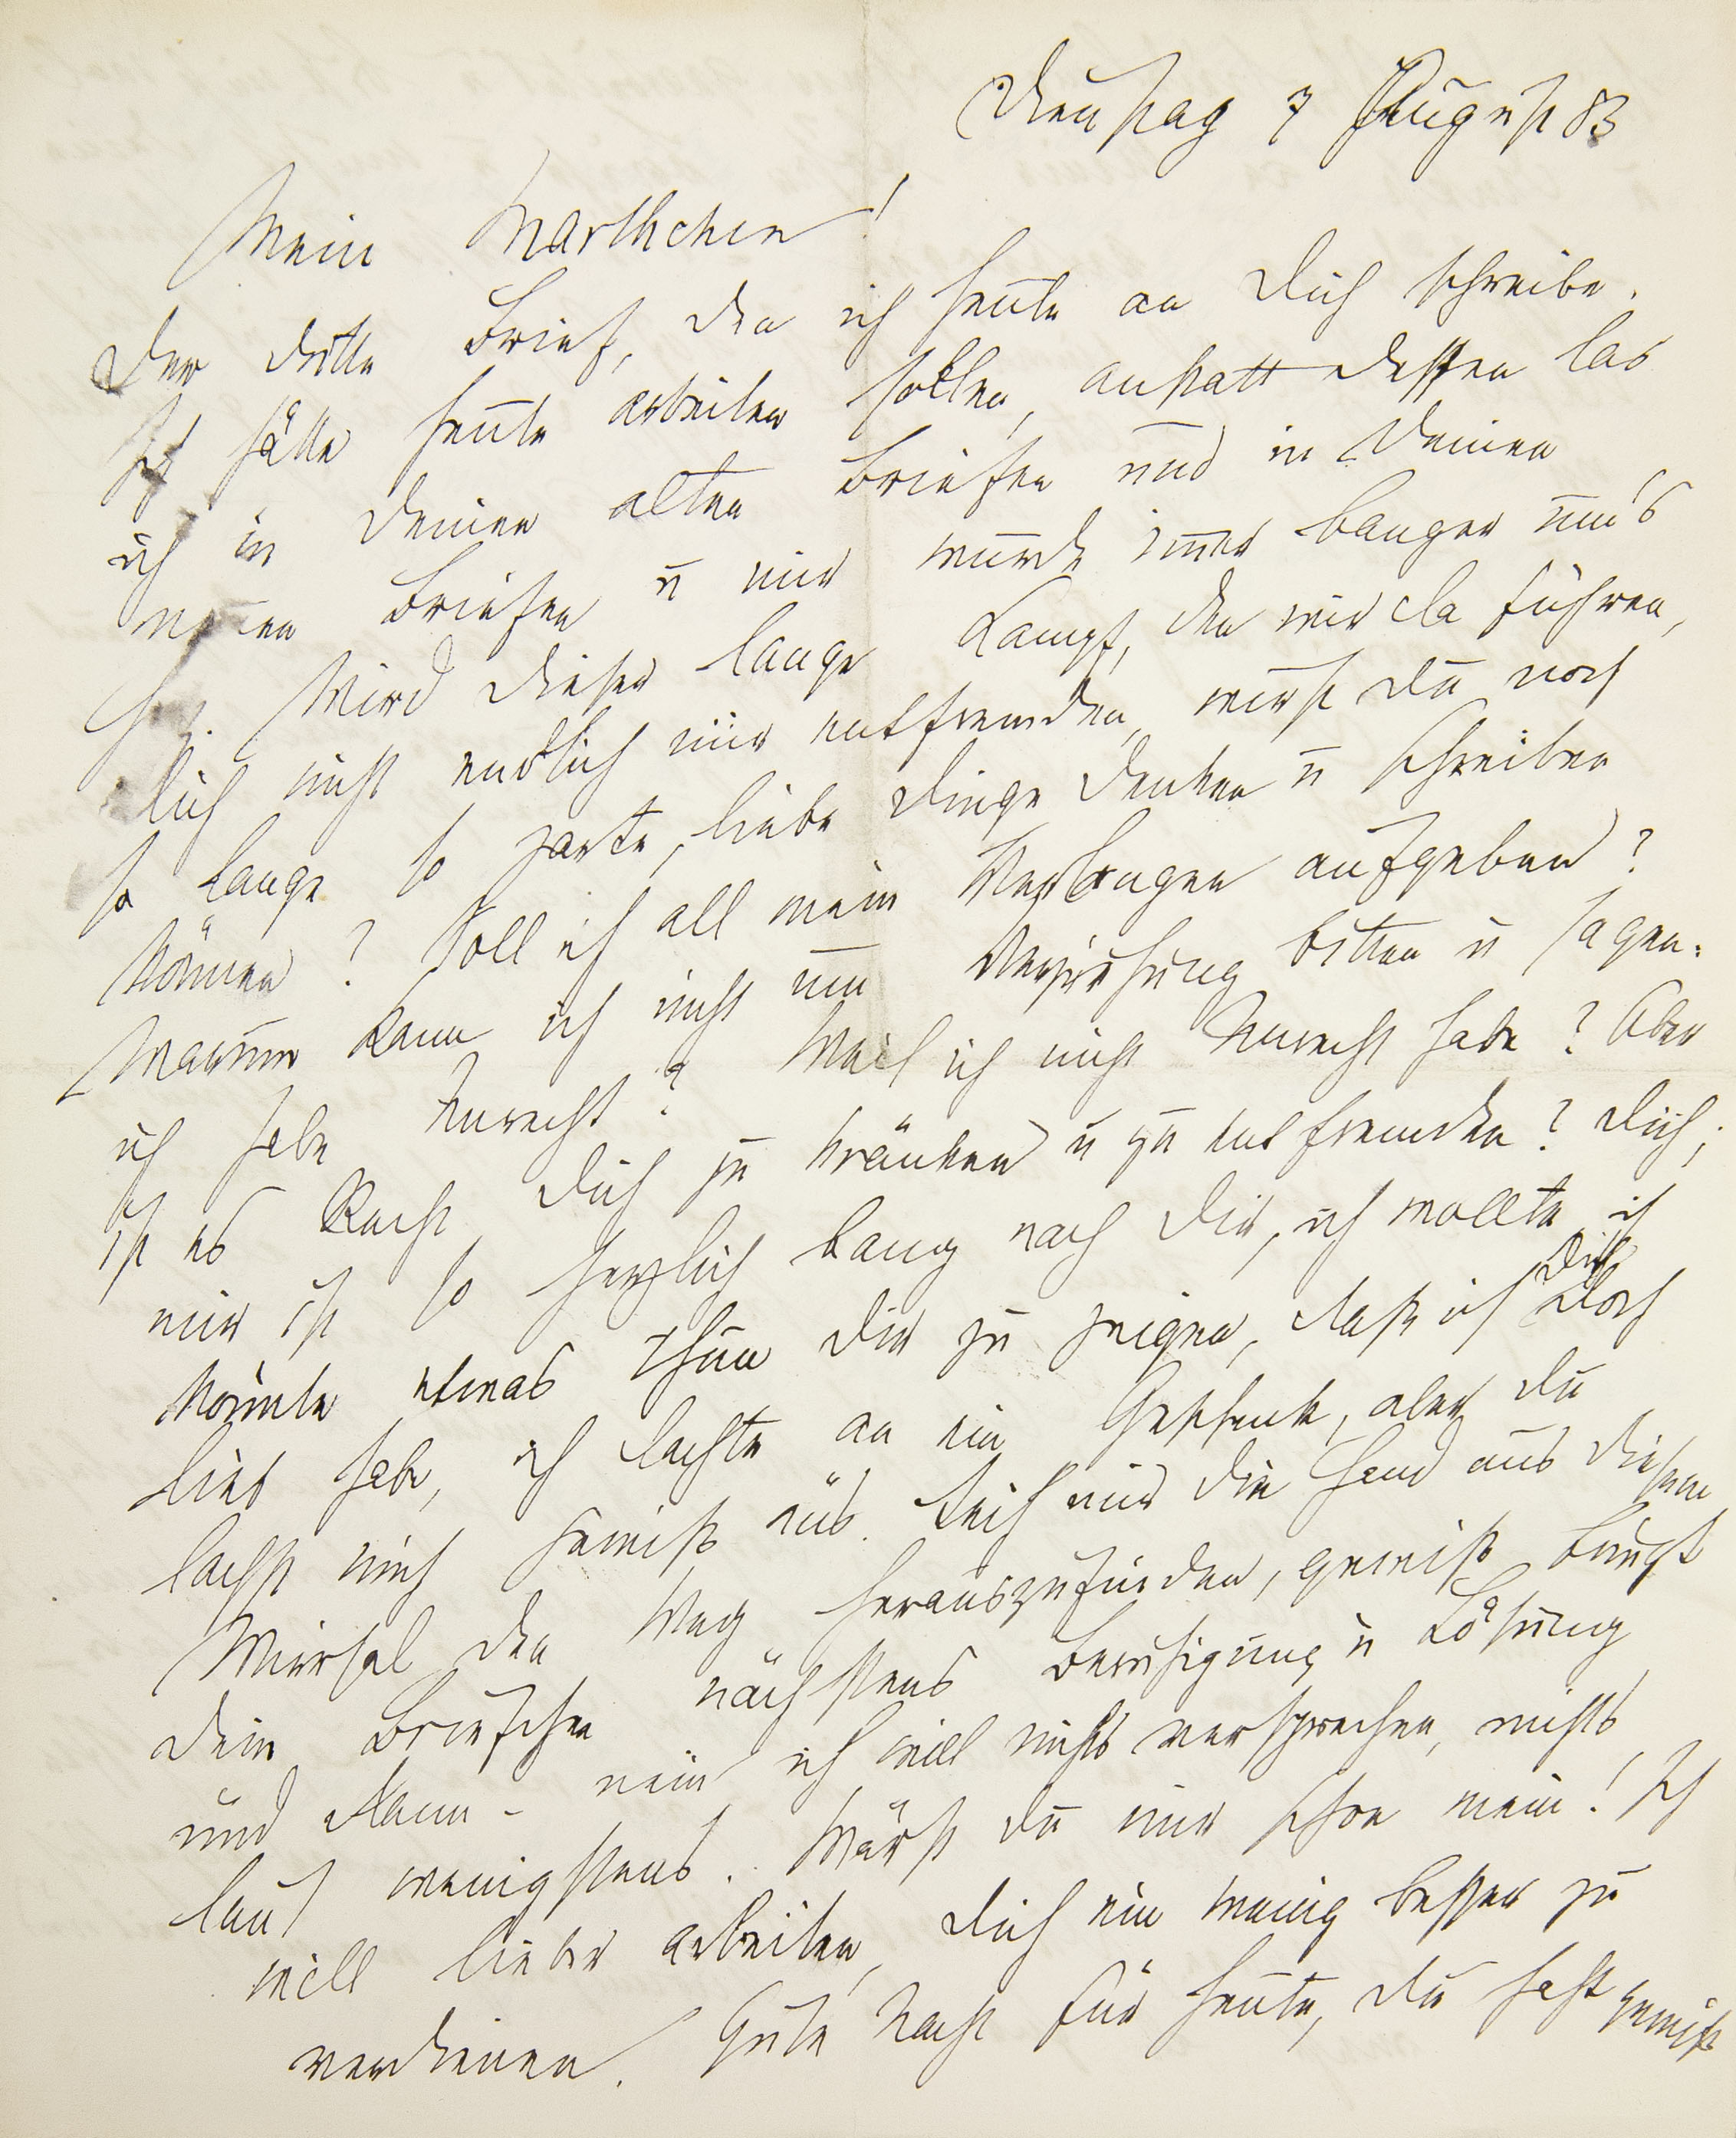 Dienstag 7 August 83
Mein Marthchen!
Der dritte Brief, den ich heute an Dich schreibe.
Ich hätte heute arbeiten sollen, anstatt dessen las
ich in Deinen alten Briefen und in Deinen
neuen Briefen u mir wurde immer banger um's
Herz. Wird dieser lange Kampf, den wir da führen,
Dich nicht endlich mir entfremden, wirst Du noch
so lange so zarte, liebe Dinge denken u schreiben
können? Soll ich all mein Verlangen aufgeben?
Warum kann ich nicht um Verzeihung bitten u sagen:
ich habe Unrecht? Weil ich nicht Unrecht habe? Aber
ist es Recht, Dich zu kränken u zu entfremden? Dich;
mir ist so herzlich bang nach Dir, ich wollte ich
könnte etwas thun Dir zu zeigen, daß ich Dich doch
lieb habe, ich dachte an ein Geschenk, aber Du
lachst mich gewiß aus. Leih mir die Hand aus diesem
Wirrsal den Weg herauszufinden, gewiß bringt
Dein Briefchen nächstens Beruhigung u Lösung
und dann - nein ich will nichts versprechen, nichts
laut wenigstens. Wärst Du nur schon mein! Ich
will lieber arbeiten, Dich ein wenig besser zu
verdienen. Gute Nacht für heute, Du hast gewiß